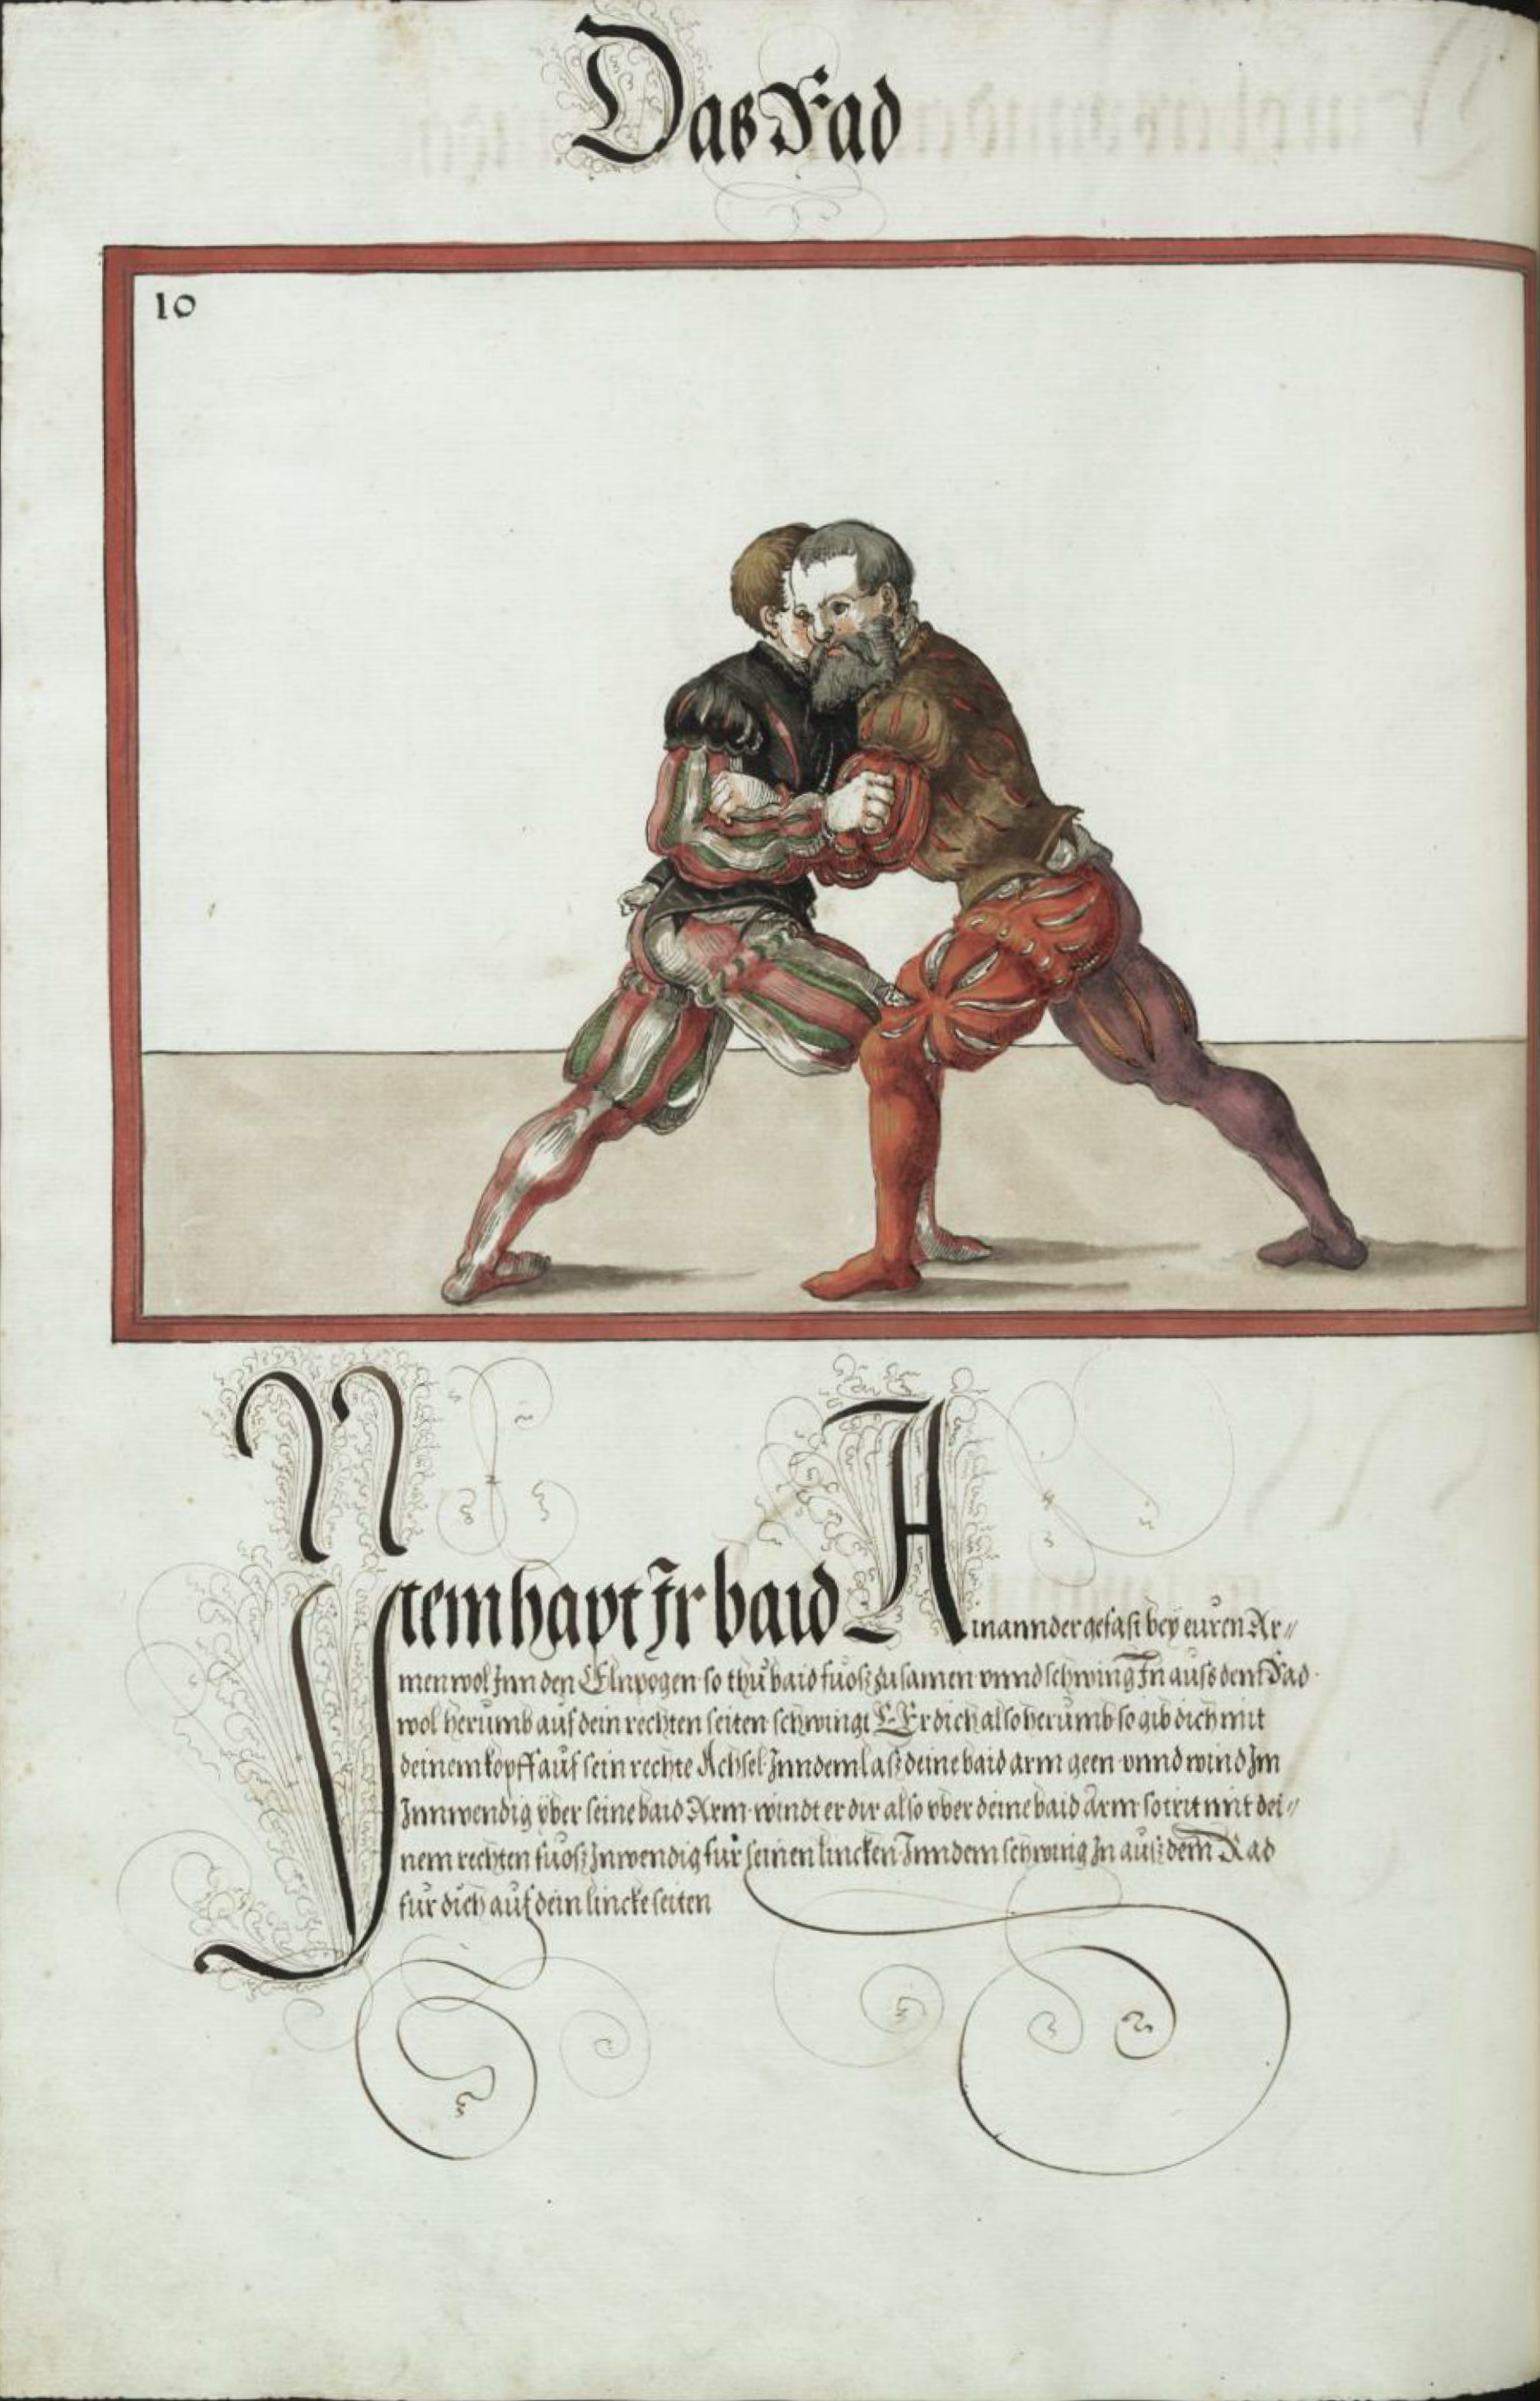 Das Rad
10
Item hapt Jr baid Ainannder gefast bey euren Ar=
men wol Jnn den Elnpogen so thu baid fuosz zusamen vnnd schwing Jn auss dem Rad
wol herumb auf dein rechten seiten schwingt Er dich also herumb so gib dich mit
deinem kopff auf sein rechte Achsel Jnndem lasz deine baid arm geen vnnd wind Jm
Jnnwendig vber seine baid Arm windt er dir also vber deine baid arm so trit mit dei=
nem rechten fuosz Jnwendig fur seinen lincken Jnndem schwing Jn ausz dem Rad
fur dich auf dein lincke seiten